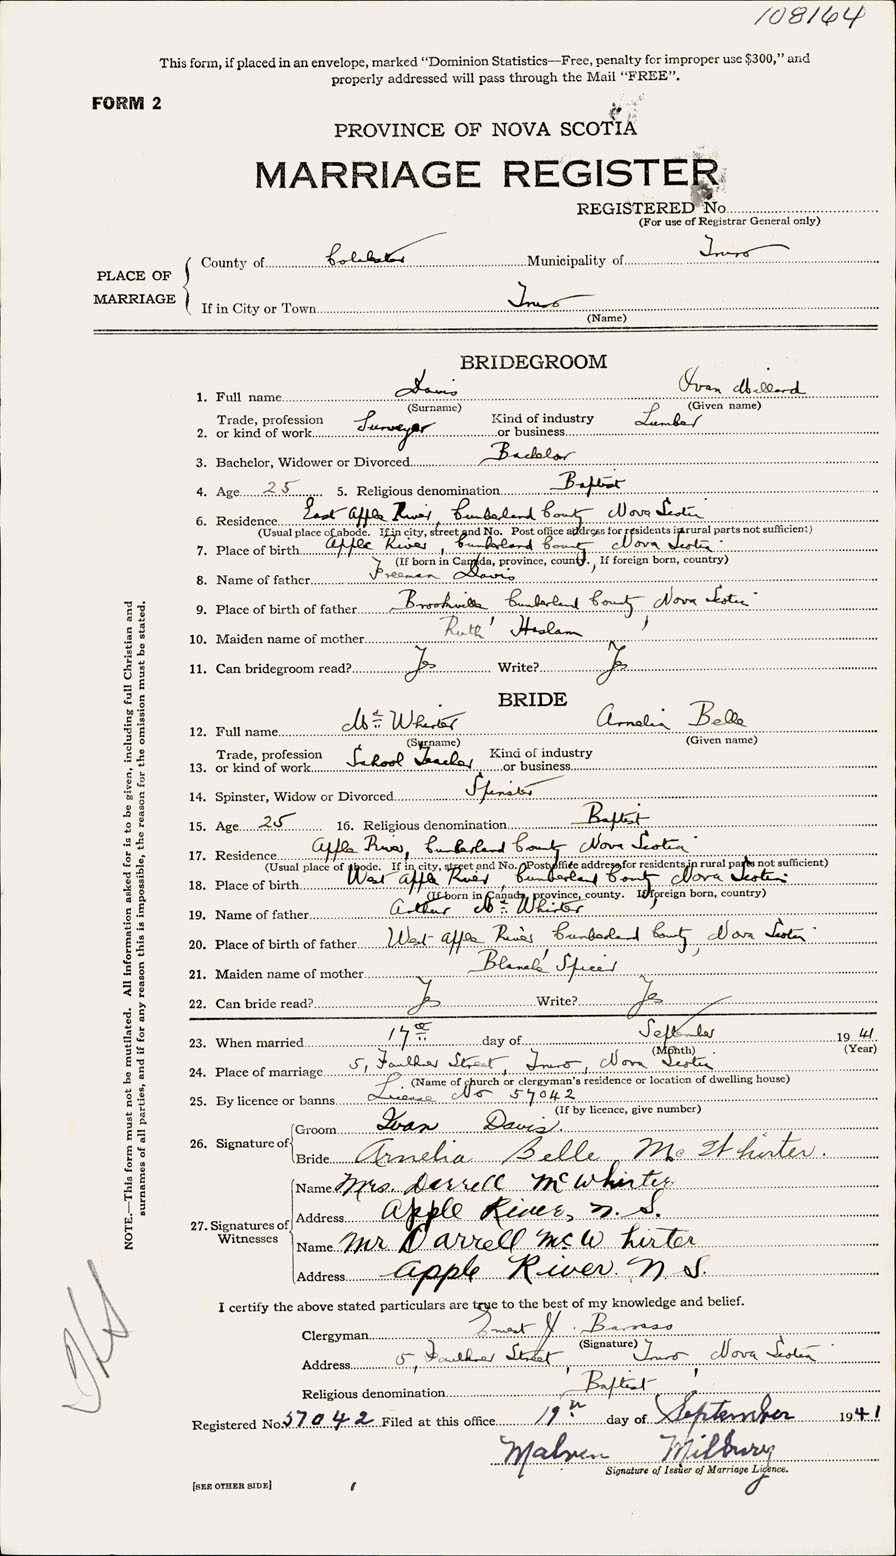 108164
This form, if placed in an envelope, marked "Dominion Statistics—Free, penalty for improper use $300," and
properly addressed will pass through the Mail "FREE".
FORM 2
PROVINCE OF NOVA SCOTIA
MARRIAGE REGISTER
REGISTERED No.
(For use of Registrar General only)
PLACE OF MARRIAGE
County of Colchester Municipality of Truro
If in City or Town Truro
(Name)
BRIDEGROOM
1. Full name Davis Ivan Millard
(Surname) (Given name)
2. Trade, profession or kind of work Surveyor Kind of industry or business Lumber
3. Bachelor, Widower or Divorced Bachelor
4. Age 25 5. Religious denomination Baptist
6. Residence East Apple River, Cumberland County Nova Scotia
(Usual place of abode. If in city, street and No. Post office address for residents in rural parts not sufficient)
7. Place of birth Apple River, Cumberland County Nova Scotia
(If born in Canada, province, county. If foreign born, country)
8. Name of father Freeman Davis
9. Place of birth of father Brookville Cumberland County, Nova Scotia
10. Maiden name of mother Ruth Haslam
11. Can bridegroom read? Yes Write? Yes
BRIDE
12. Full name Mc Whirter Arnelia Belle
(Surname) (Given name)
13. Trade, profession or kind of work School Teacher Kind of industry or business
14. Spinster, Widow or Divorced Spinster
15. Age 25 16. Religious denomination Baptist
17. Residence Apple River, Cumberland County Nova Scotia
(Usual place of abode. If in city, street and No. Post office address for residents in rural parts not sufficient)
18. Place of birth West Apple River, Cumberland County Nova Scotia
(If born in Canada, province, county. If foreign born, country)
19. Name of father Arthur Mc Whirter
20. Place of birth of father West Apple River Cumberland County, Nova Scotia
21. Maiden name of mother Blanch Spicer
22. Can bride read? Yes Write? Yes
23. When married 17th day of September 1941
(Month) (Year)
24. Place of marriage 5, Faulkner Street, Truro, Nova Scotia
(Name of church or clergyman's residence or location of dwelling house)
25. By licence or banns License No 57042
(If by licence, give number)
26. Signature of
Groom Ivan Davis.
Bride Arnelia Belle McWhirter.
27. Signatures of Witnesses
Name Mrs. Darrell McWhirter
Address Apple River, N.S.
Name Mr Darrell McWhirter
Address Apple River N.S.
I certify the above stated particulars are true to the best of my knowledge and belief.
Clergyman Ernest J. Barrass
(Signature)
Address 5, Faulkner Street, Truro, Nova Scotia
Religious denomination Baptist
Registered No. 57042 Filed at this office 19th day of September 1941
Malven Milbury
Signature of Issuer of Marriage Licence.
[SEE OTHER SIDE]
NOTE.—This form must not be mutilated. All information asked for is to be given, including full Christian and
surnames of all parties, and if for any reason this is impossible, the reason for the omission must be stated.